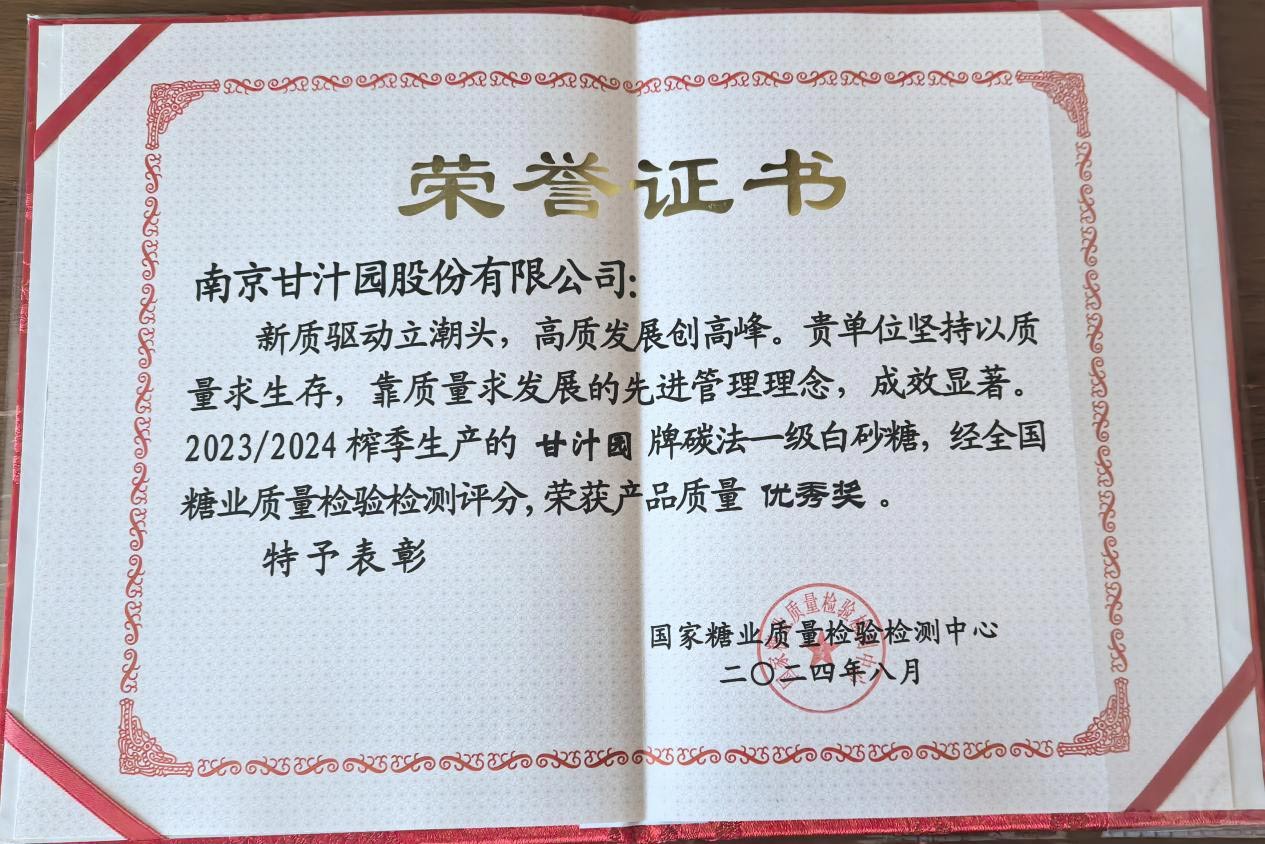 荣誉证书
南京甘汁园股份有限公司:
新质驱动立潮头，高质发展创高峰。贵单位坚持以质
量求生存，靠质量求发展的先进管理理念，成效显著。
2023/2024榨季生产的 甘汁园 牌碳法一级白砂糖，经全国
糖业质量检验检测评分,荣获产品质量 优秀奖 。
特予表彰
国家糖业质量检验检测中心
二〇二四年八月